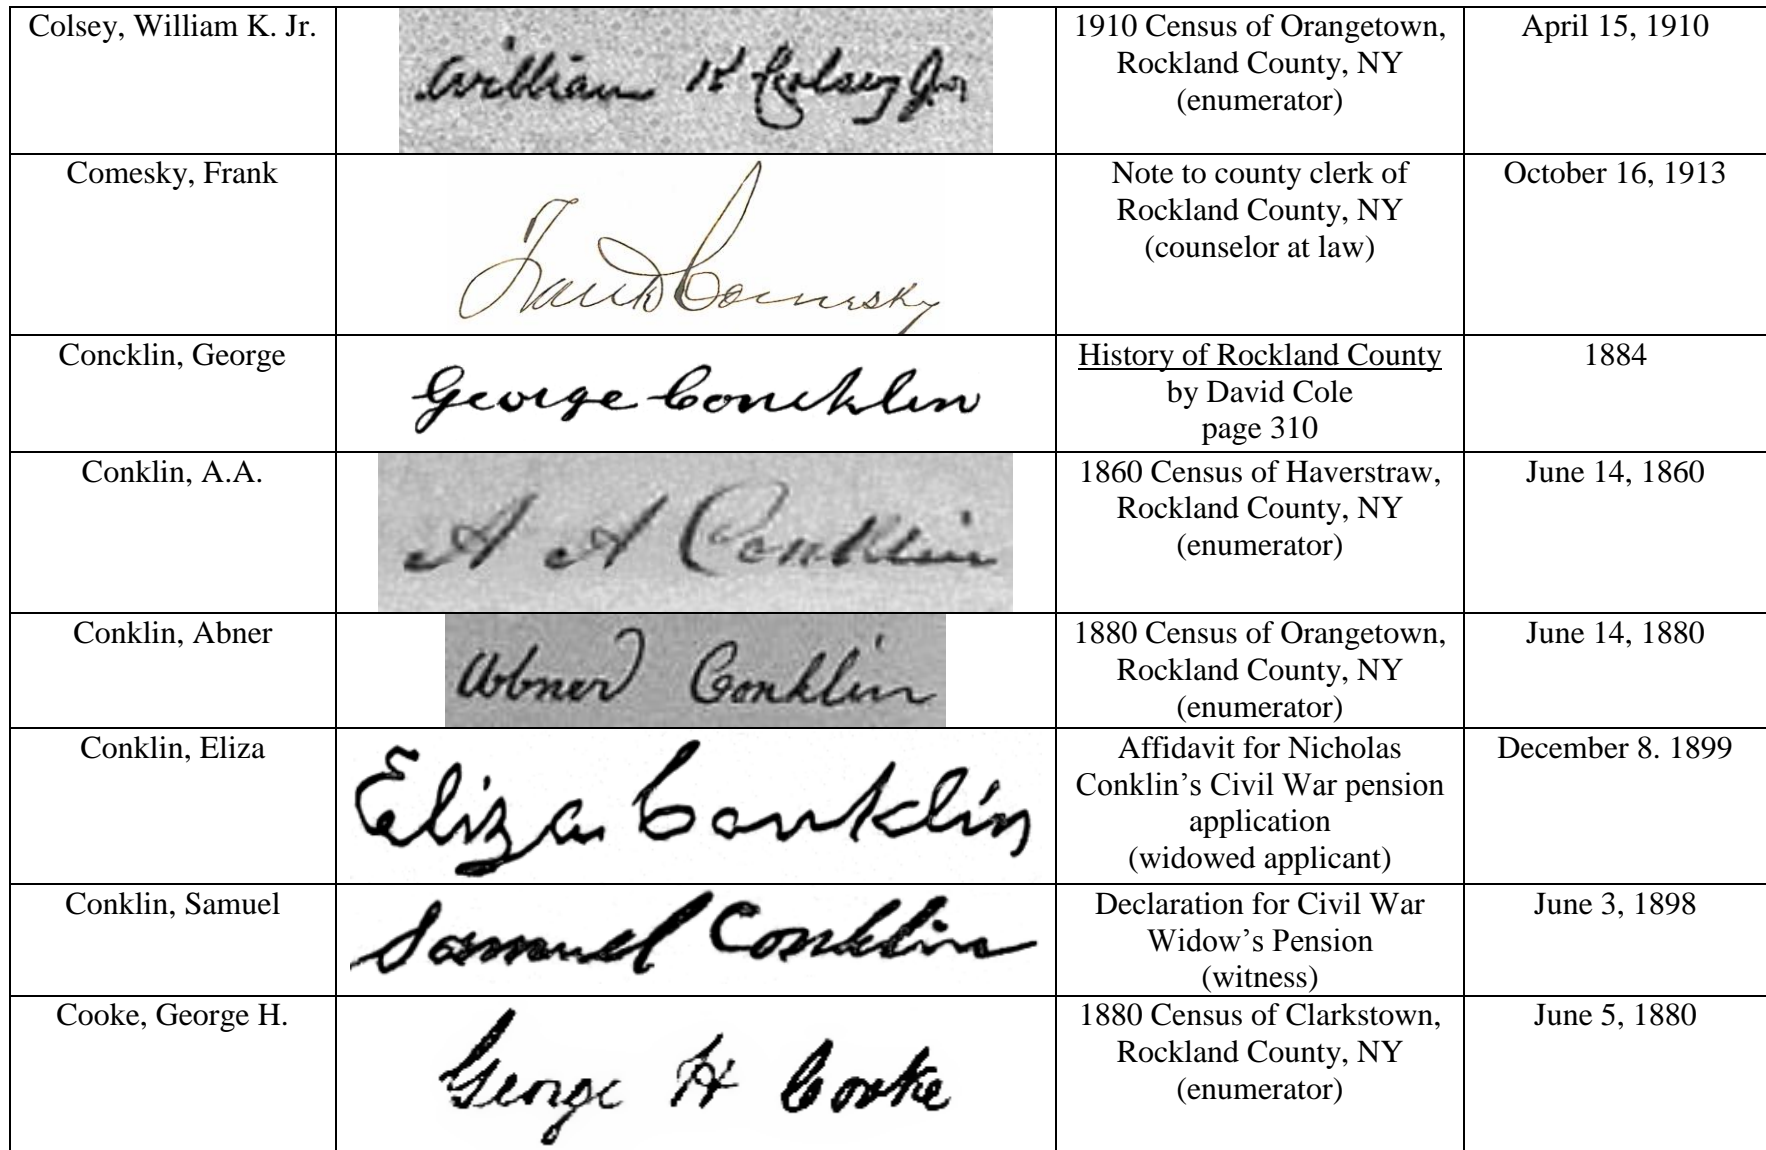 Colsey, William K. Jr.
William K Colsey Jr
1910 Census of Orangetown,
Rockland County, NY
(enumerator)
April 15, 1910
Comesky, Frank
Frank Comesky
Note to county clerk of
Rockland County, NY
(counselor at law)
October 16, 1913
Concklin, George
George Concklin
History of Rockland County
by David Cole
page 310
1884
Conklin, A.A.
A A Conklin
1860 Census of Haverstraw,
Rockland County, NY
(enumerator)
June 14, 1860
Conklin, Abner
Abner Conklin
1880 Census of Orangetown,
Rockland County, NY
(enumerator)
June 14, 1880
Conklin, Eliza
Eliza Conklin
Affidavit for Nicholas
Conklin’s Civil War pension
application
(widowed applicant)
December 8. 1899
Conklin, Samuel
Samuel Conklin
Declaration for Civil War
Widow’s Pension
(witness)
June 3, 1898
Cooke, George H.
George H Cooke
1880 Census of Clarkstown,
Rockland County, NY
(enumerator)
June 5, 1880